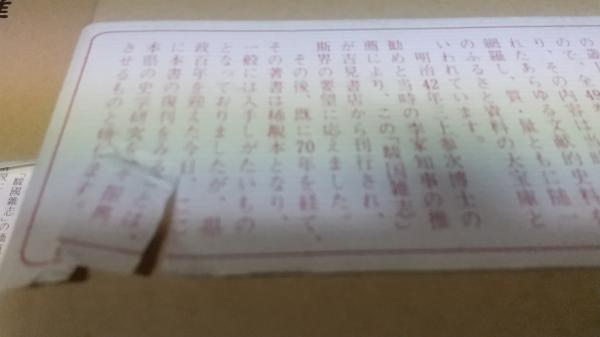 の叢
ので、その内容は当時
り、あらゆる文献的史料を
網羅し、質・量ともに随一
のふるさと資料の大宝庫と
いわれています。
明治42年三上参次博士の
勧めと当時の李家知事の推
薦により、この「駿国雑志」
が吉見書店から刊行され、
斯界の要望に応えました。
その後、既に70年を経て、
その著書は稀覯本となり、
一般には入手しがたいもの
となっておりましたが、県
政百年を迎えた今日、ここ
に本書の復刊をみることは、
本県の史学研究を
させるものと信じます。
「駿國雑志」の